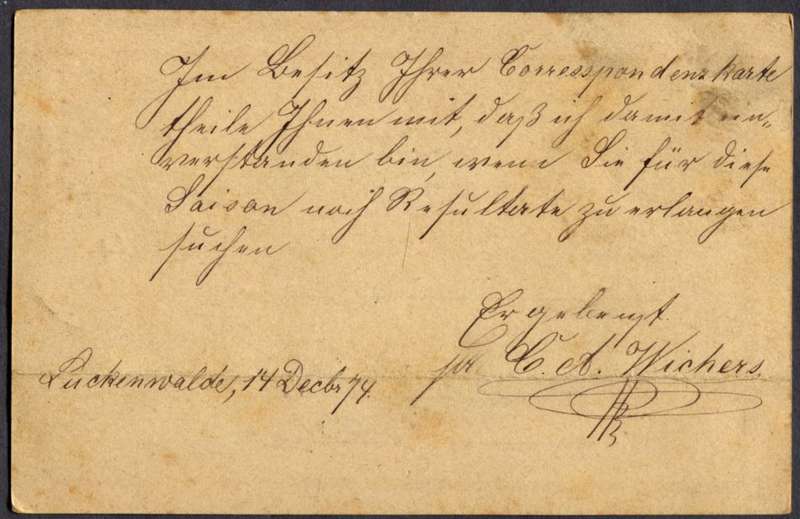 Im Besitz Ihrer Correspondenzkarte
theile Ihnen mit, daß ich damit ein-
verstanden bin, wenn Sie für diese
Saison noch Resultate zu erlangen
suchen
Ergebenst
C. A. Wichers
Luckenwalde, 14 Decbr 74